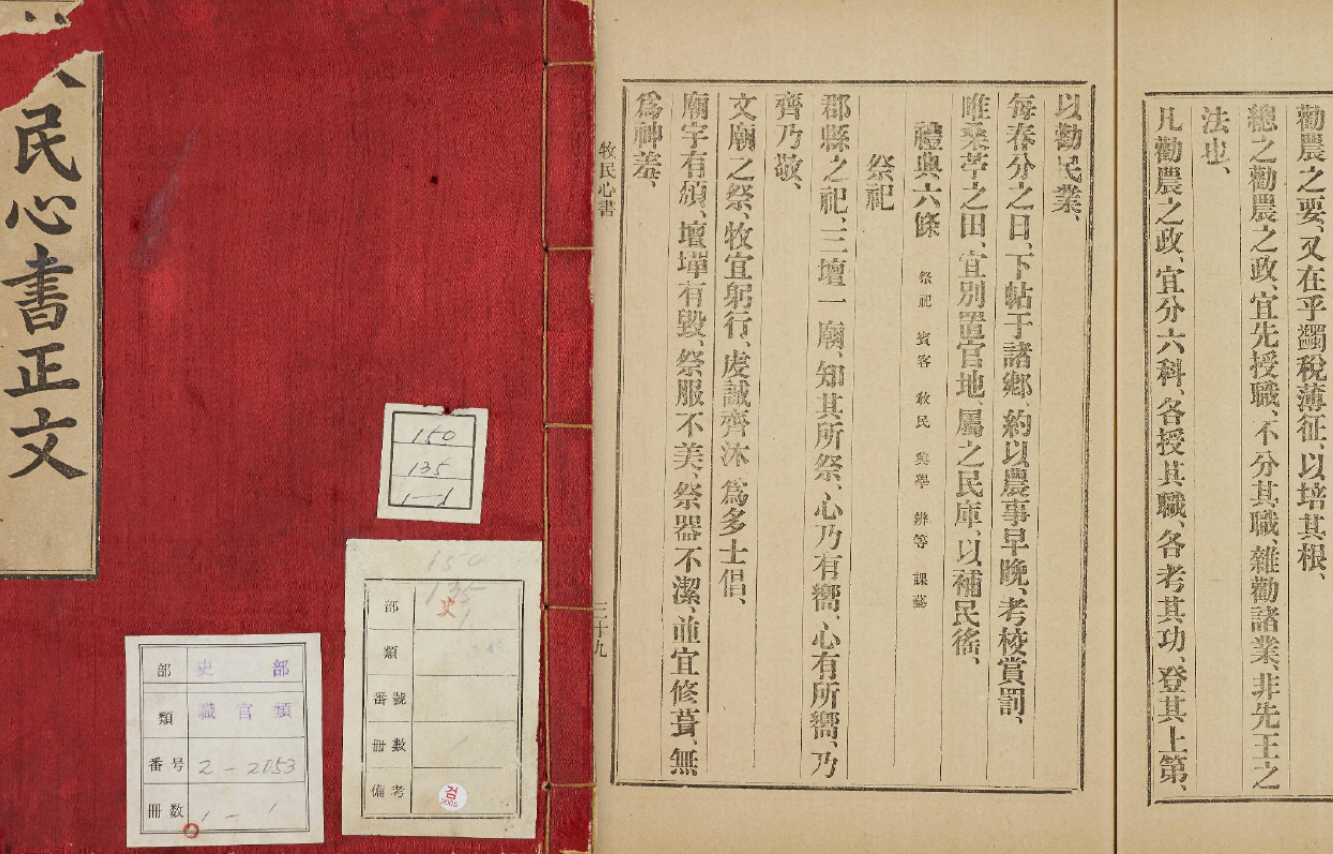 民心書正文
150
135
1-1
150
135
部 史
類
番號
冊數
備考
검
2005
部 史部
類 職官類
番号 2-2053
冊数 1-1
勸農之要、又在乎蠲稅薄征、以培其根、
總之勸農之政、宜先授職、不分其職、雜勸諸業、非先王之
法也、
凡勸農之政、宜分六科、各授其職、各考其功、登其上第、
以勸民業、
每春分之日、下帖于諸鄉、約以農事早晚、考校賞罰、
唯桑苧之田、宜別置官地、屬之民庫、以補民徭、
禮典六條 祭祀 賓客 敎民 興學 辨等 課藝
祭祀
郡縣之祀、三壇一廟、知其所祭、心乃有嚮、心有所嚮、乃
齊乃敬、
文廟之祭、牧宜躬行、虔誠齊沐、爲多士倡、
廟宇有頹、壇墠有毀、祭服不美、祭器不潔、並宜修葺、無
爲神羞、
牧民心書
三十九